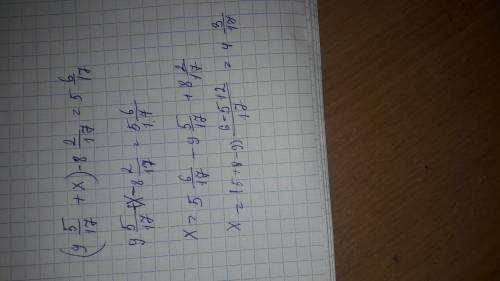 (9 5/17 + x) - 8 2/17 = 5 6/17
9 5/17 + x - 8 2/17 = 5 6/17
x = 5 6/17 - 9 5/17 + 8 2/17
x = (5+8-9) 6-5+2/17 = 4 3/17